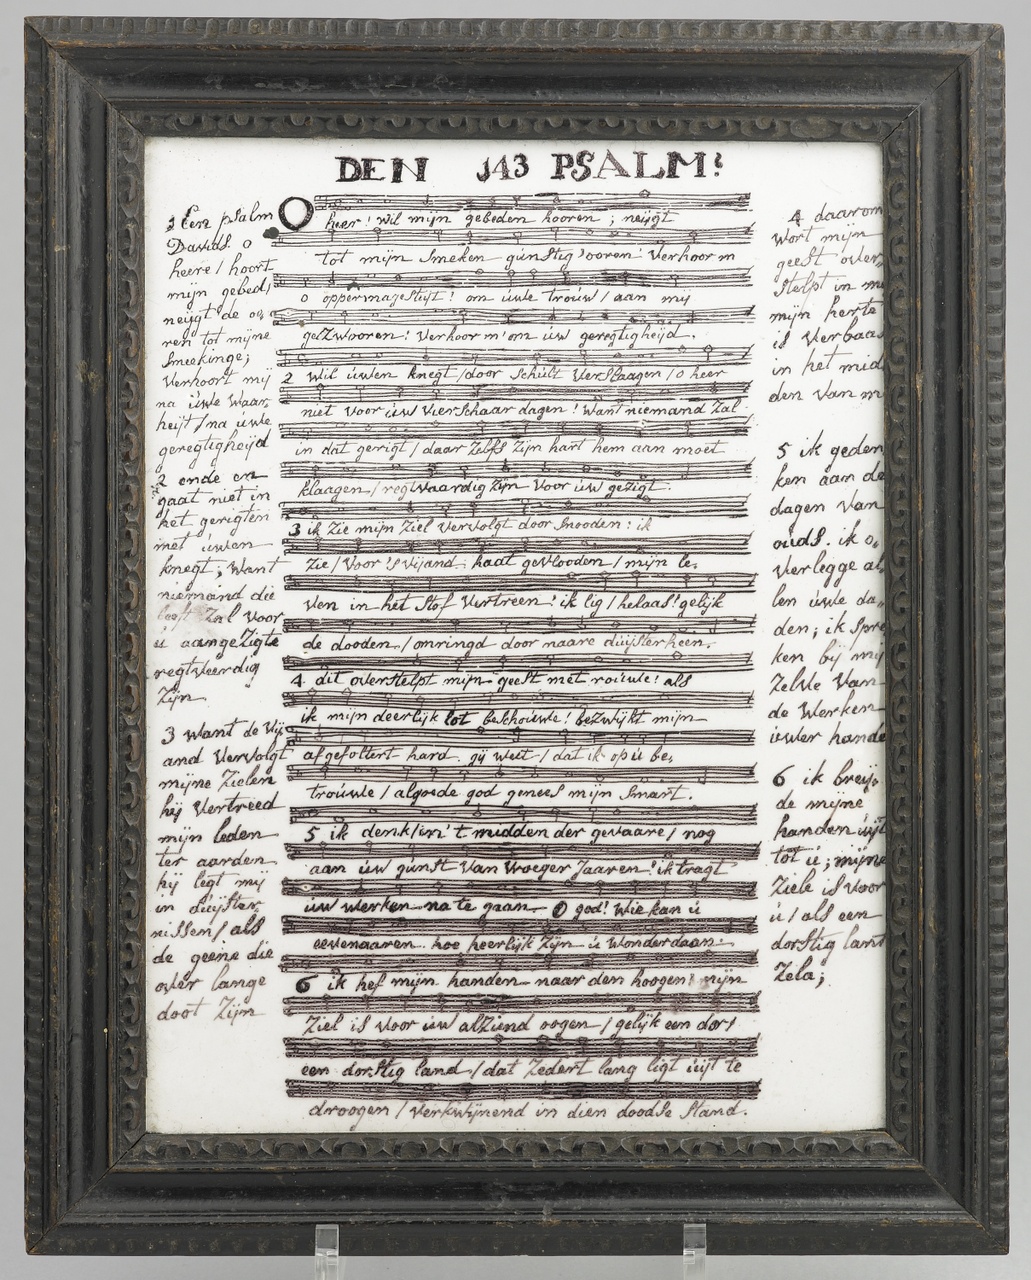 DEN 143 PSALM:
1 Een psalm
Davids. o
heere / hoort
mijn gebed /
neijgt de oo,
ren tot mijne
Smeekinge;
Verhoort mij
na úwe Waar,
heijt / na uwe
geregtigheijd
2 ende en
gaat niet in
het gerigten
met úwen
knegt; Want
niemand die
leeft Zal Voor
ú aangeZigte
regtveerdig
Zijn
3 Want de Vij
and Vervolgt
mijne Zielen
hij Vertreed
mijn leden
ter aarden
hij legt mij
in duijster,
nissen / als
de geene die
over lange
doot Zijn
O heer! Wil mijn gebeden hooren ; neijgt
tot mijn Smeken gúnstig'ooren! Verhoor m
o oppermajesteijt! om úwe troúw / aan mij
geZwooren! Verhoor m'om úw geregtigheijd.
2 Wil úwen knegt / door Schúlt Verslaagen / o heer
niet Voor úw Vierschaar dagen! Want niemand Zal
in dat gerigt / daar Zelfs Zijn hart hem aan moet
klaagen / regtWaardig Zijn Voor úw gezigt.
3 ik Zie mijn Ziel Vervolgt door Snooden: ik
Zie / Voor 'sVijand haat geVlooden / mijn le,
Ven in het Stof Vertreen! ik lig / helaas! gelijk
de dooden / omringd door naare dúijsterheen.
4 dit overstelpt mijn geest met roúwe! als
ik mijn deerlijk lot beschouwe! beZwijkt mijn
afgefoltert hard. gij Weet / dat ik op ú be,
troúwe / algoede god genees mijn Smart.
5 ik denk / in 't midden der gevaare / nog
aan úw gúnst Van Vroeger Jaaren! ik tragt
úw Werken na te gaan. O god! Wie kan ú
eevenaaren. hoe heerlijk Zijn ú Wonderdaan.
6 ik hef mijn handen naar den hoogen! mijn
Ziel is Voor úw alZiend oogen / gelijk een dor /
een dorstig land / dat Zedert lang ligt úijt te
droogen / Verkwijnend in dien doodse Stand.
4 daarom
Wort mijn
geest over,
Stelpt in m
mijn herte
is Verbaas
in het mid
den Van m
5 ik geden
ken aan de
dagen Van
ouds. ik o,
Verlegge al
len úwe da,
den; ik Spre
ken bij mij
Zelve Van
de Werken
úwer hande
6 ik breij,
de mijne
handen úijt
tot ú; mijne
Ziele is Voor
ú / als een
dorstig lant
Zela;